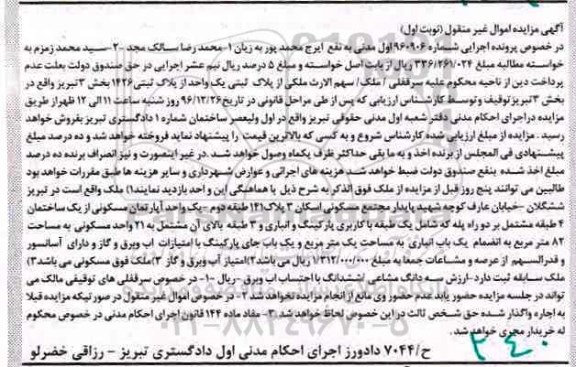 آگهی مزایده اموال غیر منقول (نوبت اول)
در خصوص پرونده اجرایی شماره ۹۶۰۹۰۶ اول مدنی به نفع ایرج محمد پور به زیان ۱-محمد رضا سالک مجد -۲-سید محمد زمزم به
خواسته مطالبه مبلغ ۳۳۶/۲۶۱/۰۲۴ ریال از بابت اصل خواسته و مبلغ ۵ درصد ریال نیم عشر اجرایی در حق صندوق دولت بعلت عدم
پرداخت دین از ناحیه محکوم علیه سرقفلی / ملک/ سهم الارث ملکی از پلاک ثبتی یک واحد از پلاک ثبتی ۱۴۲۶ بخش ۳ تبریز واقع در
بخش ۳ تبریز توقیف و توسط کارشناس ارزیابی که پس از طی مراحل قانونی در تاریخ ۹۶/۱۲/۲۶ روز شنبه ساعت ۱۱ الی ۱۲ ظهر از طریق
مزایده در اجرای احکام مدنی دفتر شعبه اول مدنی حقوقی تبریز واقع در اول ولیعصر ساختمان شماره ۱ دادگستری تبریز بفروش خواهد
رسید . مزایده از مبلغ ارزیابی شده کارشناس شروع و به کسی که بالاترین قیمت را پیشنهاد نماید فروخته خواهد شد و ده درصد مبلغ
پیشنهادی فی المجلس از برنده اخذ و به ما بقی حداکثر ظرف یکماه وصول خواهد شد .در غیر اینصورت و نیز انصراف برنده ده درصد
مبلغ اخذ شده بنفع صندوق دولت ضبط خواهد شد هزینه های اجرائی و عوارض شهرداری و سایر هزینه ها طبق مقررات خواهد بود
طالبین می توانند پنج روز قبل از مزایده از ملک فوق الذکر به شرح ذیل با هماهنگی این واحد بازدید نمایند۱) ملک واقع است در تبریز
ششگلان -خیابان عارف کوچه شهید پایدار مجتمع مسکونی اسکان ۳ پلاک۱۴ طبقه دوم -یک واحد آپارتمان مسکونی از یک ساختمان
۴ طبقه مشتمل بر دو راه پله که شامل یک طبقه با کاربری پارکینگ و انباری و ۳ طبقه بالای آن مشتمل به ۲۱ واحد مسکونی به مساحت
۸۲ متر مربع به انضمام یک باب انباری به مساحت یک متر مربع و یک باب جای پارکینگ با امتیازات اب وبرق و گاز و دارای آسانسور
و قدرالسهم از عرصه و مشاعات جمعا به مبلغ ۱/۳۱۲/۰۰۰/۰۰۰ ریال می باشد۲)امتیاز آب وبرق و گاز ۳)ملک فوق مسکونی می باشد۴)
ملک سابقه ثبت دارد-ارزش سه دانگ مشاعی از ششدانگ با احتساب اب وبرق -ریال -۱- در خصوص سرقفلی های توقیفی مالک می
تواند در جلسه مزایده حضور یابد عدم حضور وی مانع از انجام مزایده نخواهد شد ۲- در خصوص اموال غیر منقول در صورتیکه مزایده قبلا
به اجاره واگذار شده حق شخص ثالث در این خصوص لحاظ خواهد شد .۳- مفاد ماده ۱۴۴ قانون اجرای احکام مدنی در خصوص محکوم
له خریدار مجری خواهد شد .
ح/۷۰۴۴ دادورز اجرای احکام مدنی اول دادگستری تبریز - رزاقی خضرلو
۲۴۰
۰۲۱-۸۸۳۴۹۶۷۰-۵